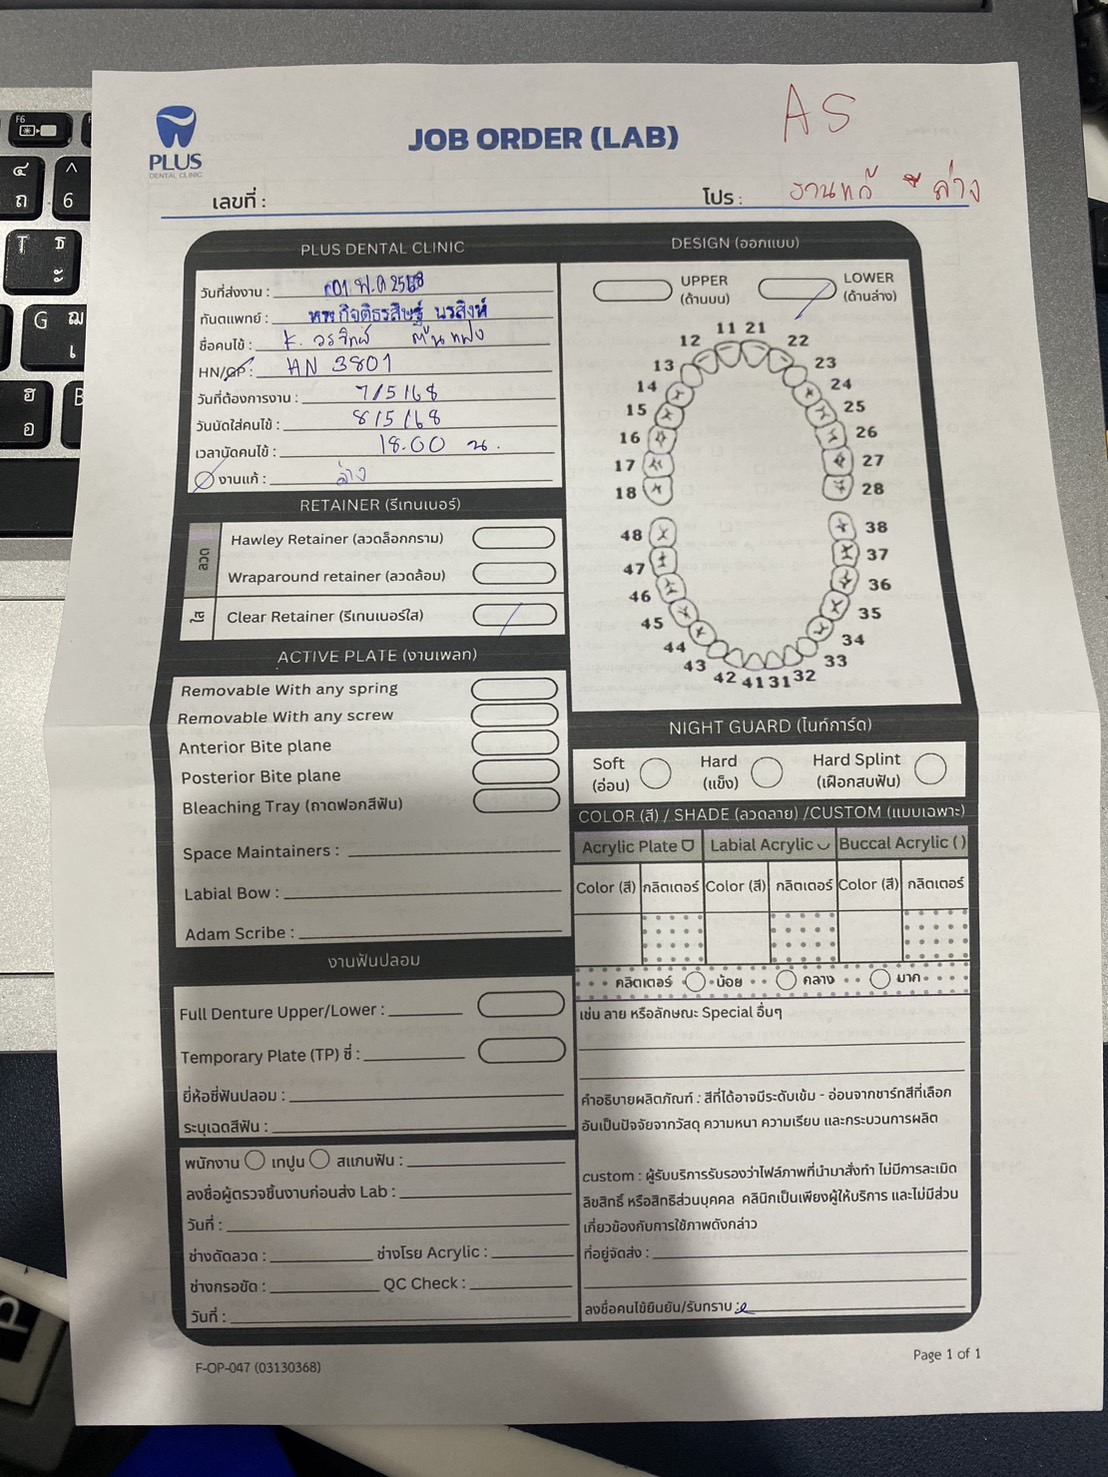 AS
PLUS
DENTAL CLINIC
JOB ORDER (LAB)
เลขที่ :
โปร : งานแก้ ล่าง
PLUS DENTAL CLINIC
วันที่ส่งงาน : 01 พ.ค 2568
ทันตแพทย์ : กิจติธรสิษฐ์ นรสิงห์
ชื่อคนไข้ : K.
HN/GP : HN 3801
วันที่ต้องการงาน : 7/5/68
วันนัดใส่คนไข้ : 8/5/68
เวลานัดคนไข้ : 18.00 น.
งานแก้ : ล่าง
RETAINER (รีเทนเนอร์)
ลวด
Hawley Retainer (ลวดล็อกกราม)
Wraparound retainer (ลวดล้อม)
ใส
Clear Retainer (รีเทนเนอร์ใส)
ACTIVE PLATE (งานเพลท)
Removable With any spring
Removable With any screw
Anterior Bite plane
Posterior Bite plane
Bleaching Tray (ถาดฟอกสีฟัน)
Space Maintainers :
Labial Bow :
Adam Scribe :
งานฟันปลอม
Full Denture Upper/Lower :
Temporary Plate (TP) ซี่ :
ยี่ห้อซี่ฟันปลอม :
ระบุเฉดสีฟัน :
พนักงาน เทปูน สแกนฟัน :
ลงชื่อผู้ตรวจชิ้นงานก่อนส่ง Lab :
วันที่ :
ช่างดัดลวด : ช่างโรย Acrylic :
ช่างกรอขัด : QC Check :
วันที่ :
DESIGN (ออกแบบ)
UPPER
(ด้านบน)
LOWER
(ด้านล่าง)
11 21
12 22
13 23
14 24
15 25
16 26
17 27
18 28
48 38
47 37
46 36
45 35
44 34
43 33
42 41 31 32
NIGHT GUARD (ไนท์การ์ด)
Soft
(อ่อน)
Hard
(แข็ง)
Hard Splint
(เฝือกสบฟัน)
COLOR (สี) / SHADE (ลวดลาย) /CUSTOM (แบบเฉพาะ)
Acrylic Plate Labial Acrylic Buccal Acrylic ( )
Color (สี) กลิตเตอร์ Color (สี) กลิตเตอร์ Color (สี) กลิตเตอร์
กลิตเตอร์ น้อย กลาง มาก
เช่น ลาย หรือลักษณะ Special อื่นๆ
คำอธิบายผลิตภัณฑ์ : สีที่ได้อาจมีระดับเข้ม - อ่อนจากชาร์ทสีที่เลือก
อันเป็นปัจจัยจากวัสดุ ความหนา ความเรียบ และกระบวนการผลิต
custom : ผู้รับบริการรับรองว่าไฟล์ภาพที่นำมาสั่งทำ ไม่มีการละเมิด
ลิขสิทธิ์ หรือสิทธิส่วนบุคคล คลินิกเป็นเพียงผู้ให้บริการ และไม่มีส่วน
เกี่ยวข้องกับการใช้ภาพดังกล่าว
ที่อยู่จัดส่ง :
ลงชื่อคนไข้ยืนยัน/รับทราบ :
F-OP-047 (03130368)
Page 1 of 1
F6
๔
ถ
^
6
T
ธ
ะ
G
ฌ
เ
ฮ
อ
B